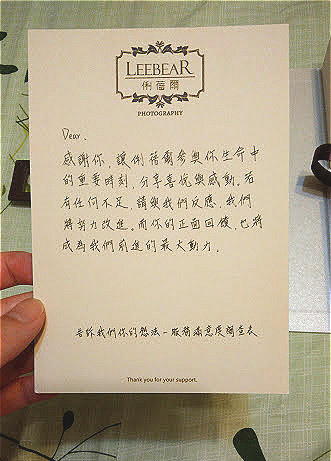 LEEBEAR
俐蓓爾
PHOTOGRAPHY
Dear.
感謝你,讓俐蓓爾參與你生命中
的重要時刻,分享喜悅與感動.若
有任何不足,請與我們反應,我們
將努力改進.而你的正面回饋,也將
成為我們前進的最大動力.
告訴我們你的想法-服務滿意度調查表
Thank you for your support.